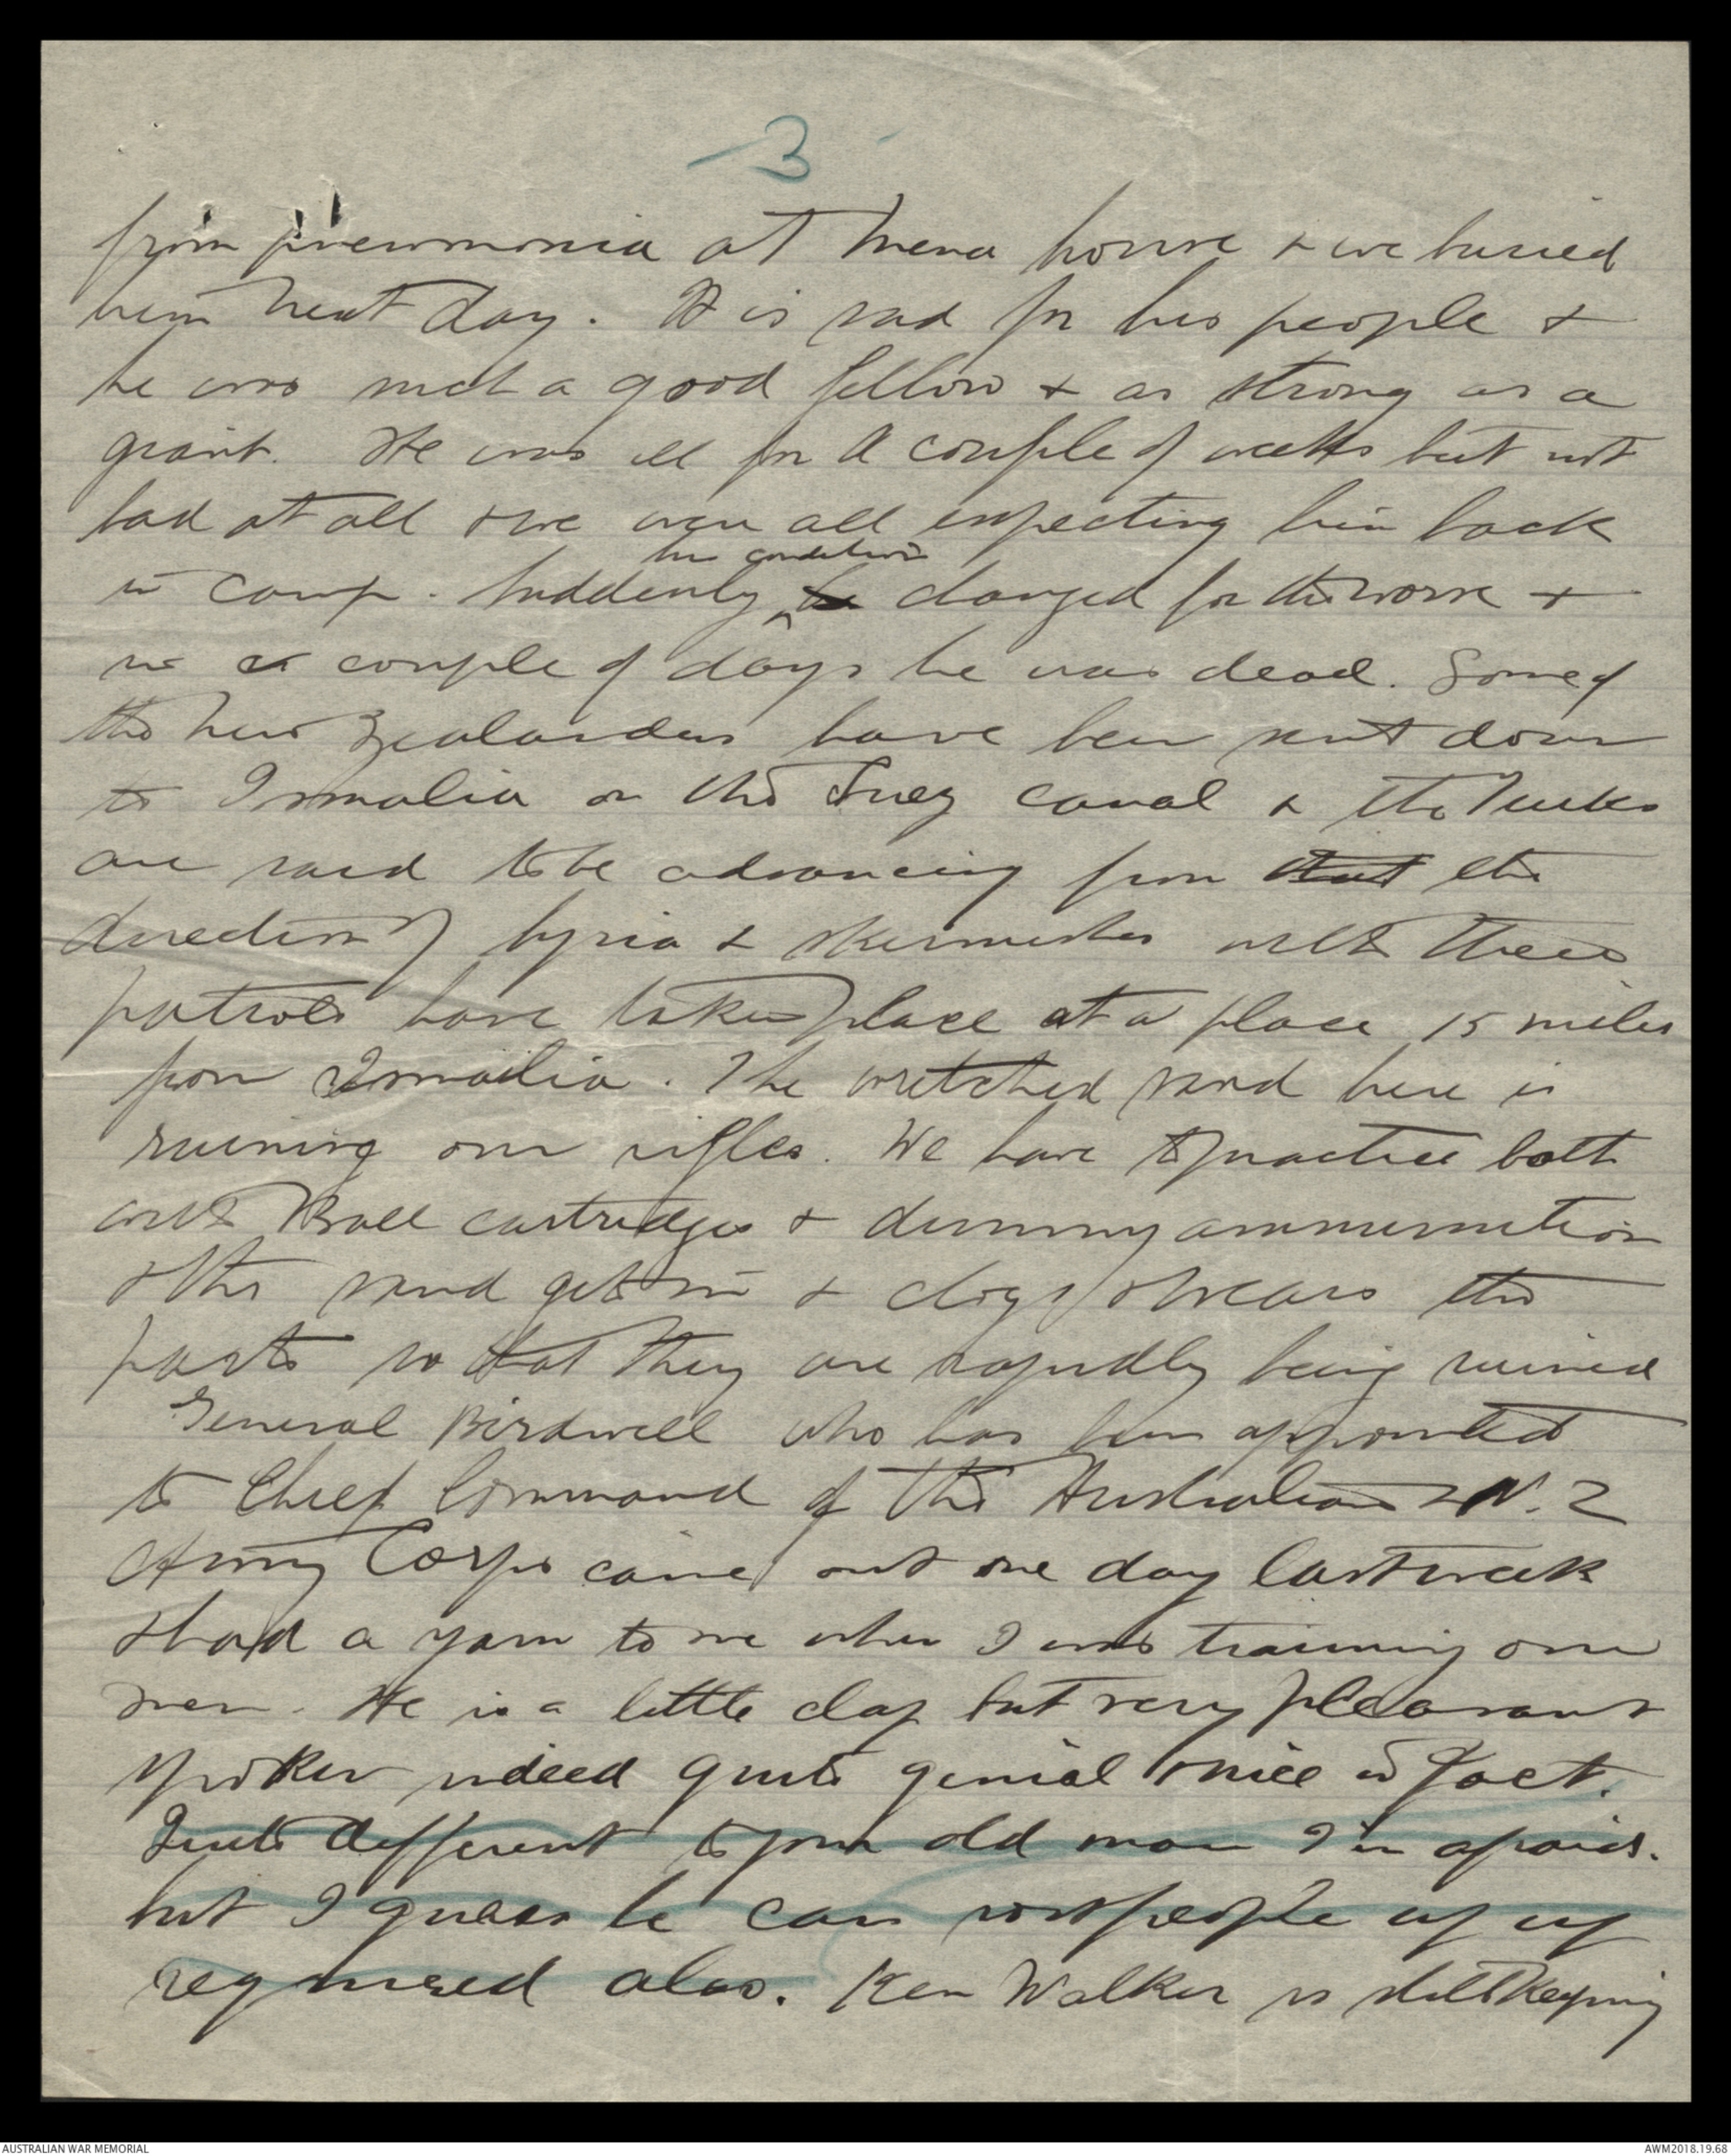 3
from pneumonia at Mena house & we buried
him next day. It is sad for his people &
he was such a good fellow & as strong as a
giant. He was ill for a couple of weeks but not
bad at all & we were all expecting him back
his condition
in camp. Suddenly he changed for the worse &
in a couple of days he was dead. Some of
the New Zealanders have been sent down
to Ismalia on the Suez canal & the Turks
are said to be advancing from that the
direction of Syria & skirmishes with their
patrols have taken place at a place 15 miles
from Ismailia. The wretched sand here is
ruining our rifles. We have to practice both
with Ball cartridges & dummy ammunition
& the sand gets in & clogs & wears the
parts so that they are rapidly being ruined
General Birdwell who has been appointed
to Chief Command of the Australian & N.Z
Army Corps came out one day last week
& had a yarn to me when I was training our
men. He is a little chap but very pleasant
spoken indeed quite genial & nice in fact.
Quite different to your old man I'm afraid.
but I guess he can rost people up if
required also. Ken Walker is still keeping
AUSTRALIAN WAR MEMORIAL
AWM2018.19.68